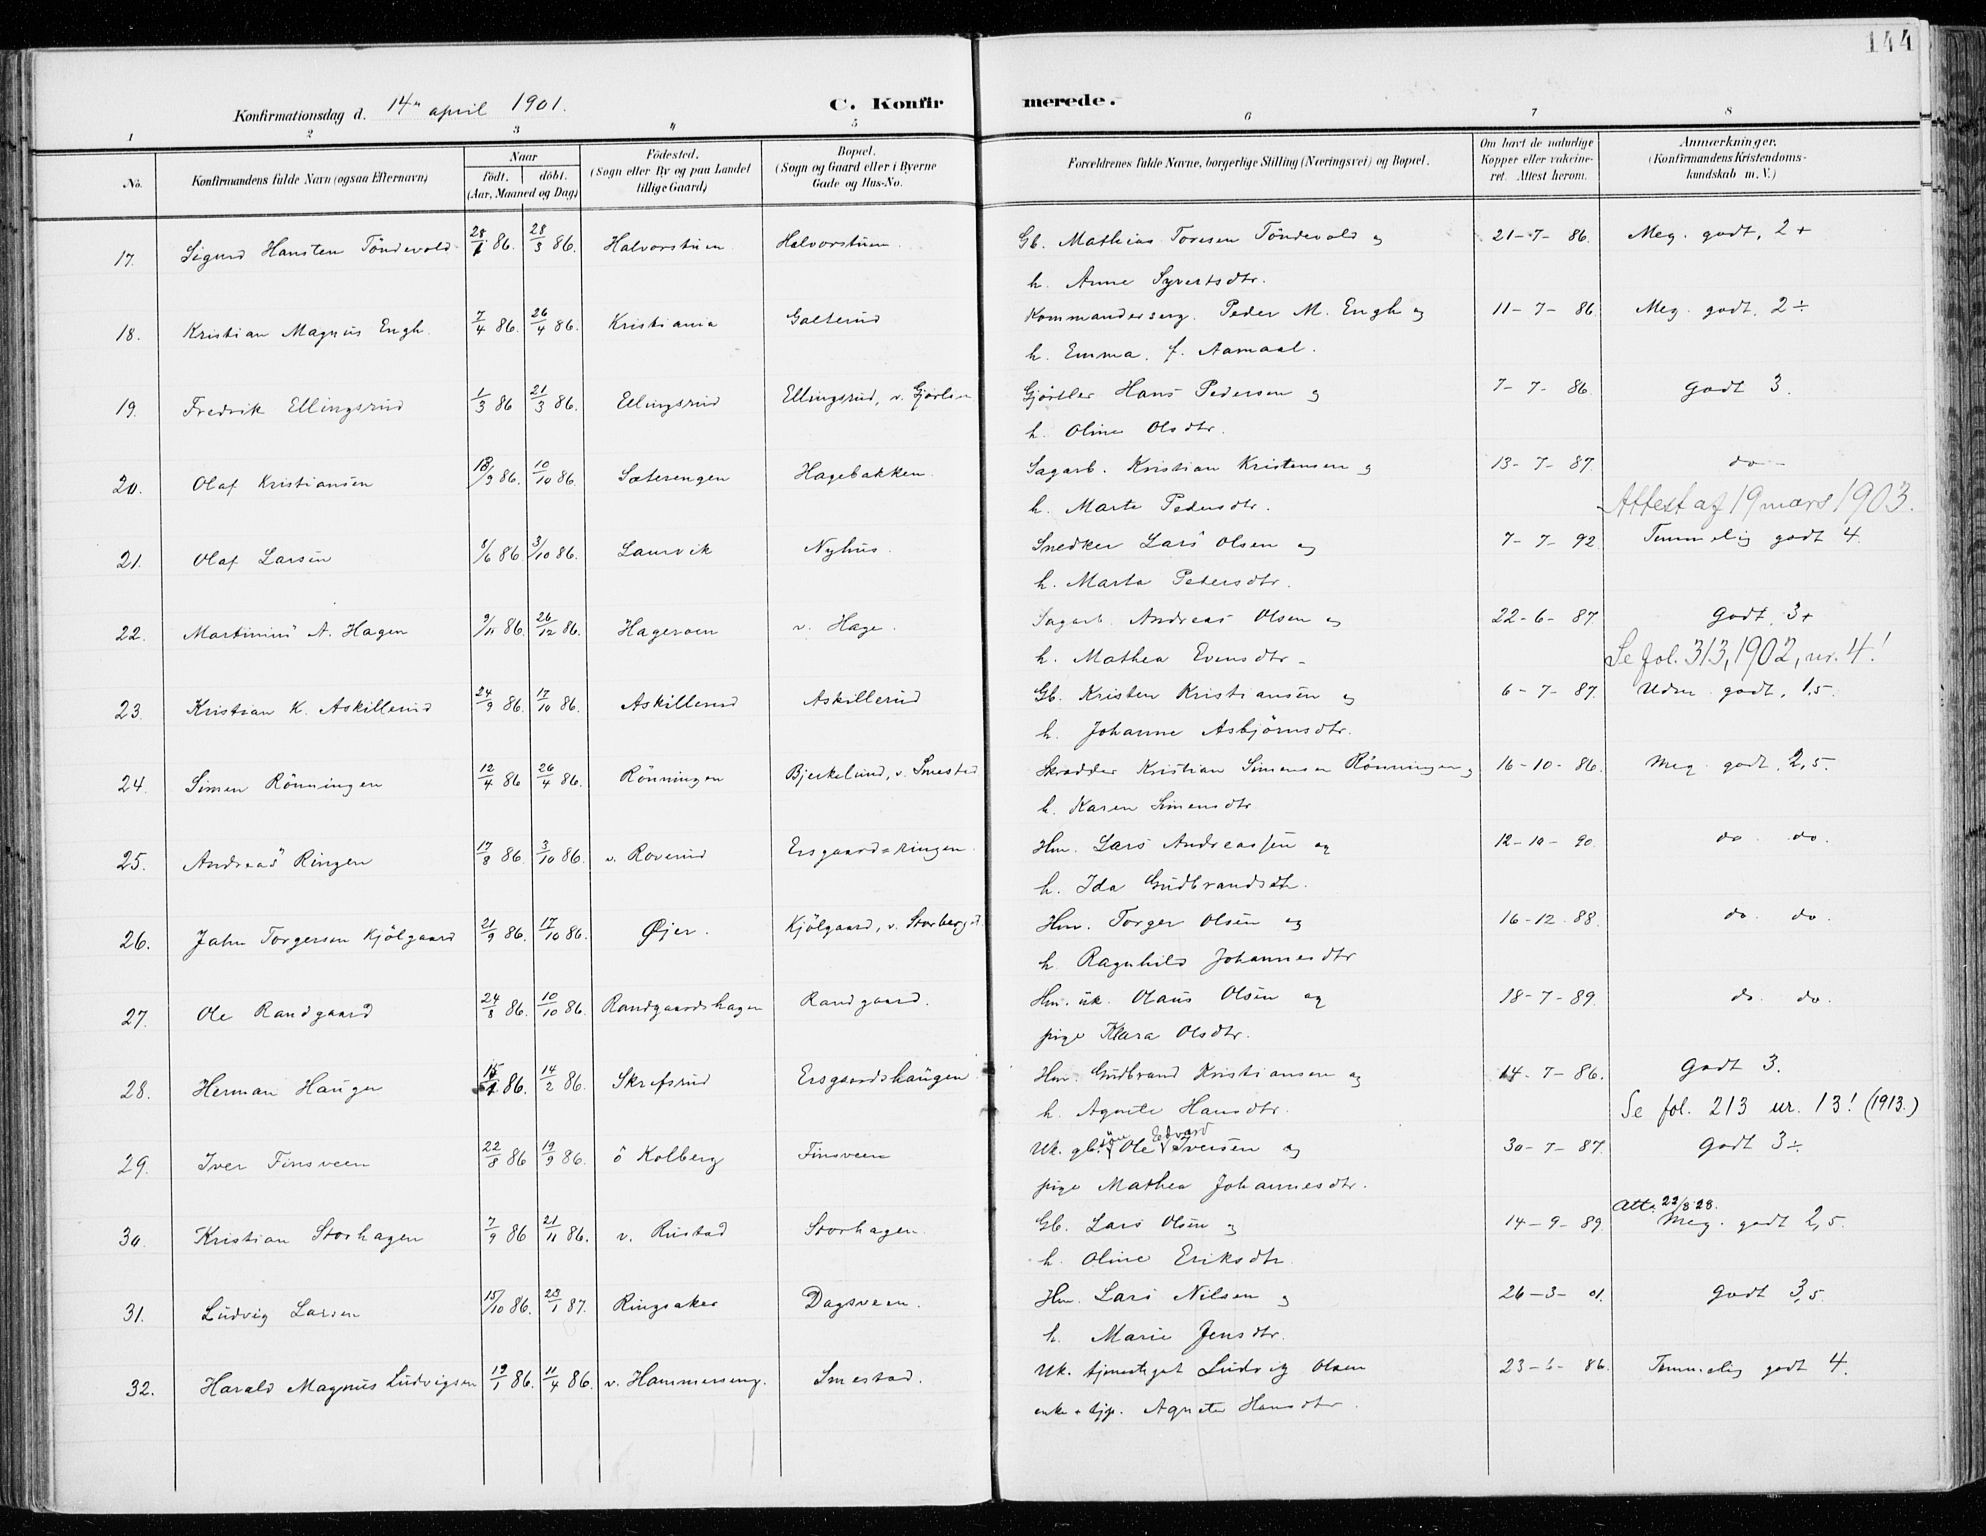 144
Konfirmationsdag d. 14de april 1901. C. Konfirmerede.
1 2 3 4 5 6 7 8
No. Konfirmandens fulde Navn (ogsaa Efternavn) Naar födt. döbt. (Aar, Maaned og Dag) Födested. (Sogn eller By og paa Landet tillige Gaard) Bopæl. (Sogn og Gaard eller i Byerne Gade og Hus-No. Forældrenes fulde Navne, borgerlige Stilling (Næringsvei) og Bopæl. Om havt de naturlige Kopper eller vakcineret. Attest herom. Anmærkninger. (Konfirmandens Kristendomskundskab m. V.)
17. Sigurd Hansten Töndevold 28/1 86. 28/3 86. Halvorstuen Halvorstuen. Gb. Mathias Toresen Töndevold og 21-7-86. Meg. godt, 2+
h. Anne Syvertsdtr.
18. Kristian Magnus Engh. 7/4 86. 26/4 86. Kristiania Galterud Kommandersersg. Peder M. Engh og 11-7-86. Meg. godt, 2÷
h. Emma f. Aamaal.
19. Fredrik Ellingsrud 1/3 86 21/3 86. Ellingsrud Ellingsrud, v. Gjörlien Gjörtler Hans Pedersen og 7-7-86. Godt 3.
h. Oline Olsdtr.
20. Olaf Kristiansen 18/9 86. 10/10 86. Sæterengen Hagebakken. Sagarb. Kristian Kristensen og 13-7-87. do -
h. Marte Pedersdtr. Attest af 19 mars 1903.
21. Olaf Larsen 8/6 86 3/10 86. Laurvik Nyhus. Snedker Lars Olsen og 7-7-92 Temmelig godt 4.
h. Marta Pedersdtr.
22. Martinius A. Hagen 9/11 86. 26/12 86. Hageroen v. Hage. Sagarb. Andreas Olsen og 22-6-87 Godt, 3+
h. Mathea Evensdtr. Se fol. 313, 1902, nr. 4!
23. Kristian K. Askillerud 24/9 86. 17/10 86. Askillerud Askillerud Gb. Kristen Kristiansen og 6-7-87. Udm. godt, 1,5.
h. Johanne Asbjörnsdtr.
24. Simen Rönningen 12/4 86 26/4 86. Rönningen Bjerkelund, v. Smestad Skrædder Kristian Simensen Rönningen og 16-10-86. Meg. godt, 2,5.
h. Karen Simensdtr.
25. Andreas Ringen 17/8 86. 3/10 86. v. Roverud Ersgaard=ringen. Hm. Lars Andreassen og 12-10-90. do do.
h. Ida Gudbrandsdtr.
26. John Torgersen Kjölgaard 21/9 86. 17/10 86. Øjer. Kjölgaard, v. Storberget Hm. Torger Olsen og 16-12-88. do. do.
h. Ragnhild Johannesdtr
27. Ole Randgaard 24/8 86. 10/10 86. Randgaardshagen Randgaard. Hm. uk. Olaus Olsen og 18-7-89. do. do.
pige Klara Olsdtr.
28. Herman Haugen 15/1 86. 14/2 86. Skrefsrud Ersgaardshaugen Hm. Gudbrand Kristiansen og 14-7-86. Godt 3.
h. Agnete Hansdtr. Se fol. 213 nr. 13! (1913.)
29. Iver Finsveen 22/8 86 19/9 86. ö Kolberg Finsveen Uk. gb. sön Ole Edvard Iversen og 30-7-87. Godt 3÷
pige Mathea Johannesdtr.
Att. 22/8 28.
30. Kristian Storhagen 7/9 86 21/11 86. v. Rustad Storhagen. Gb. Lars Olsen og 14-9-89. Meg. godt 2,5.
h. Oline Eriksdtr
31. Ludvig Larsen 15/10 86. 23/1 87. Ringsaker Dagsveen. Hm. Lars Nilsen og 26-3-01. Godt 3,5.
h. Marie Jensdtr.
32. Harald Magnus Ludvigsen 19/1 86. 11/4 86. v. Hammerseng. Smestad. Uk. tjenestegut Ludvig Olsen 23-6-86. Temmelig godt 4.
enke + tjp. Agnete Hansdtr.